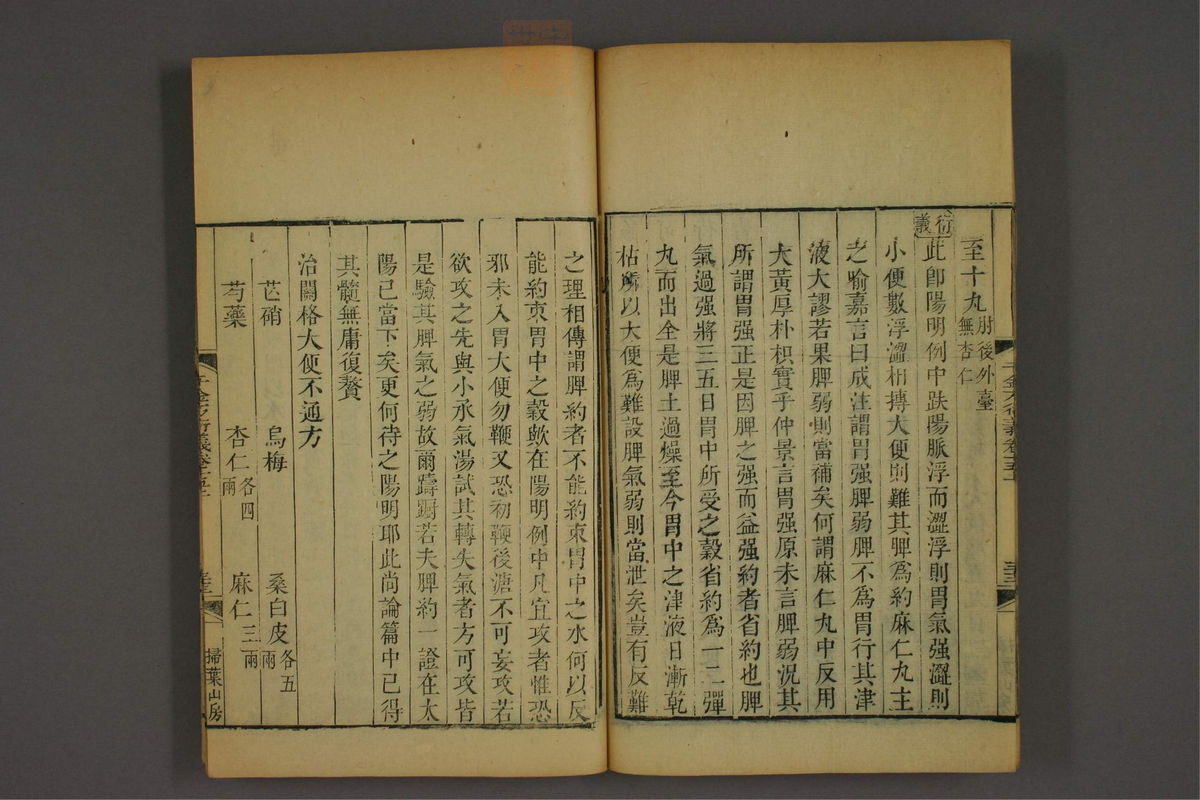 至十丸肘後外臺無杏仁
衍義此卽陽明例中趺陽脈浮而澀浮則胃氣强澀則
小便數浮澀相摶大便則難其脾爲約麻仁丸主
之喻嘉言曰成注謂胃强脾弱脾不爲胃行其津
液大謬若果脾弱則當補矣何謂麻仁丸中反用
大黃厚朴枳實乎仲景言胃强原未言脾弱況其
所謂胃强正是因脾之强而益强約者省約也脾
氣過强將三五日胃中所受之穀省約爲一二彈
丸而出全是脾土過燥至今胃中之津液日漸乾
枯所以大便爲難設脾氣弱則當泄矣豈有反難
之理相傳謂脾約者不能約束胃中之水何以反
能約束胃中之穀歟在陽明例中凡宜攻者惟恐
邪未入胃大便勿鞕又恐初鞕後溏不可妄攻若
欲攻之先與小承氣湯試其轉失氣者方可攻皆
是驗其脾氣之弱故爾躊躕若夫脾約一證在太
陽已當下矣更何待之陽明耶此尚論篇中已得
其髓無庸復贅
治關格大便不通方
芒硝 烏梅 桑白皮各五兩
芍藥 杏仁各四兩 麻仁三兩
千金方衍義卷十五上
掃葉山房